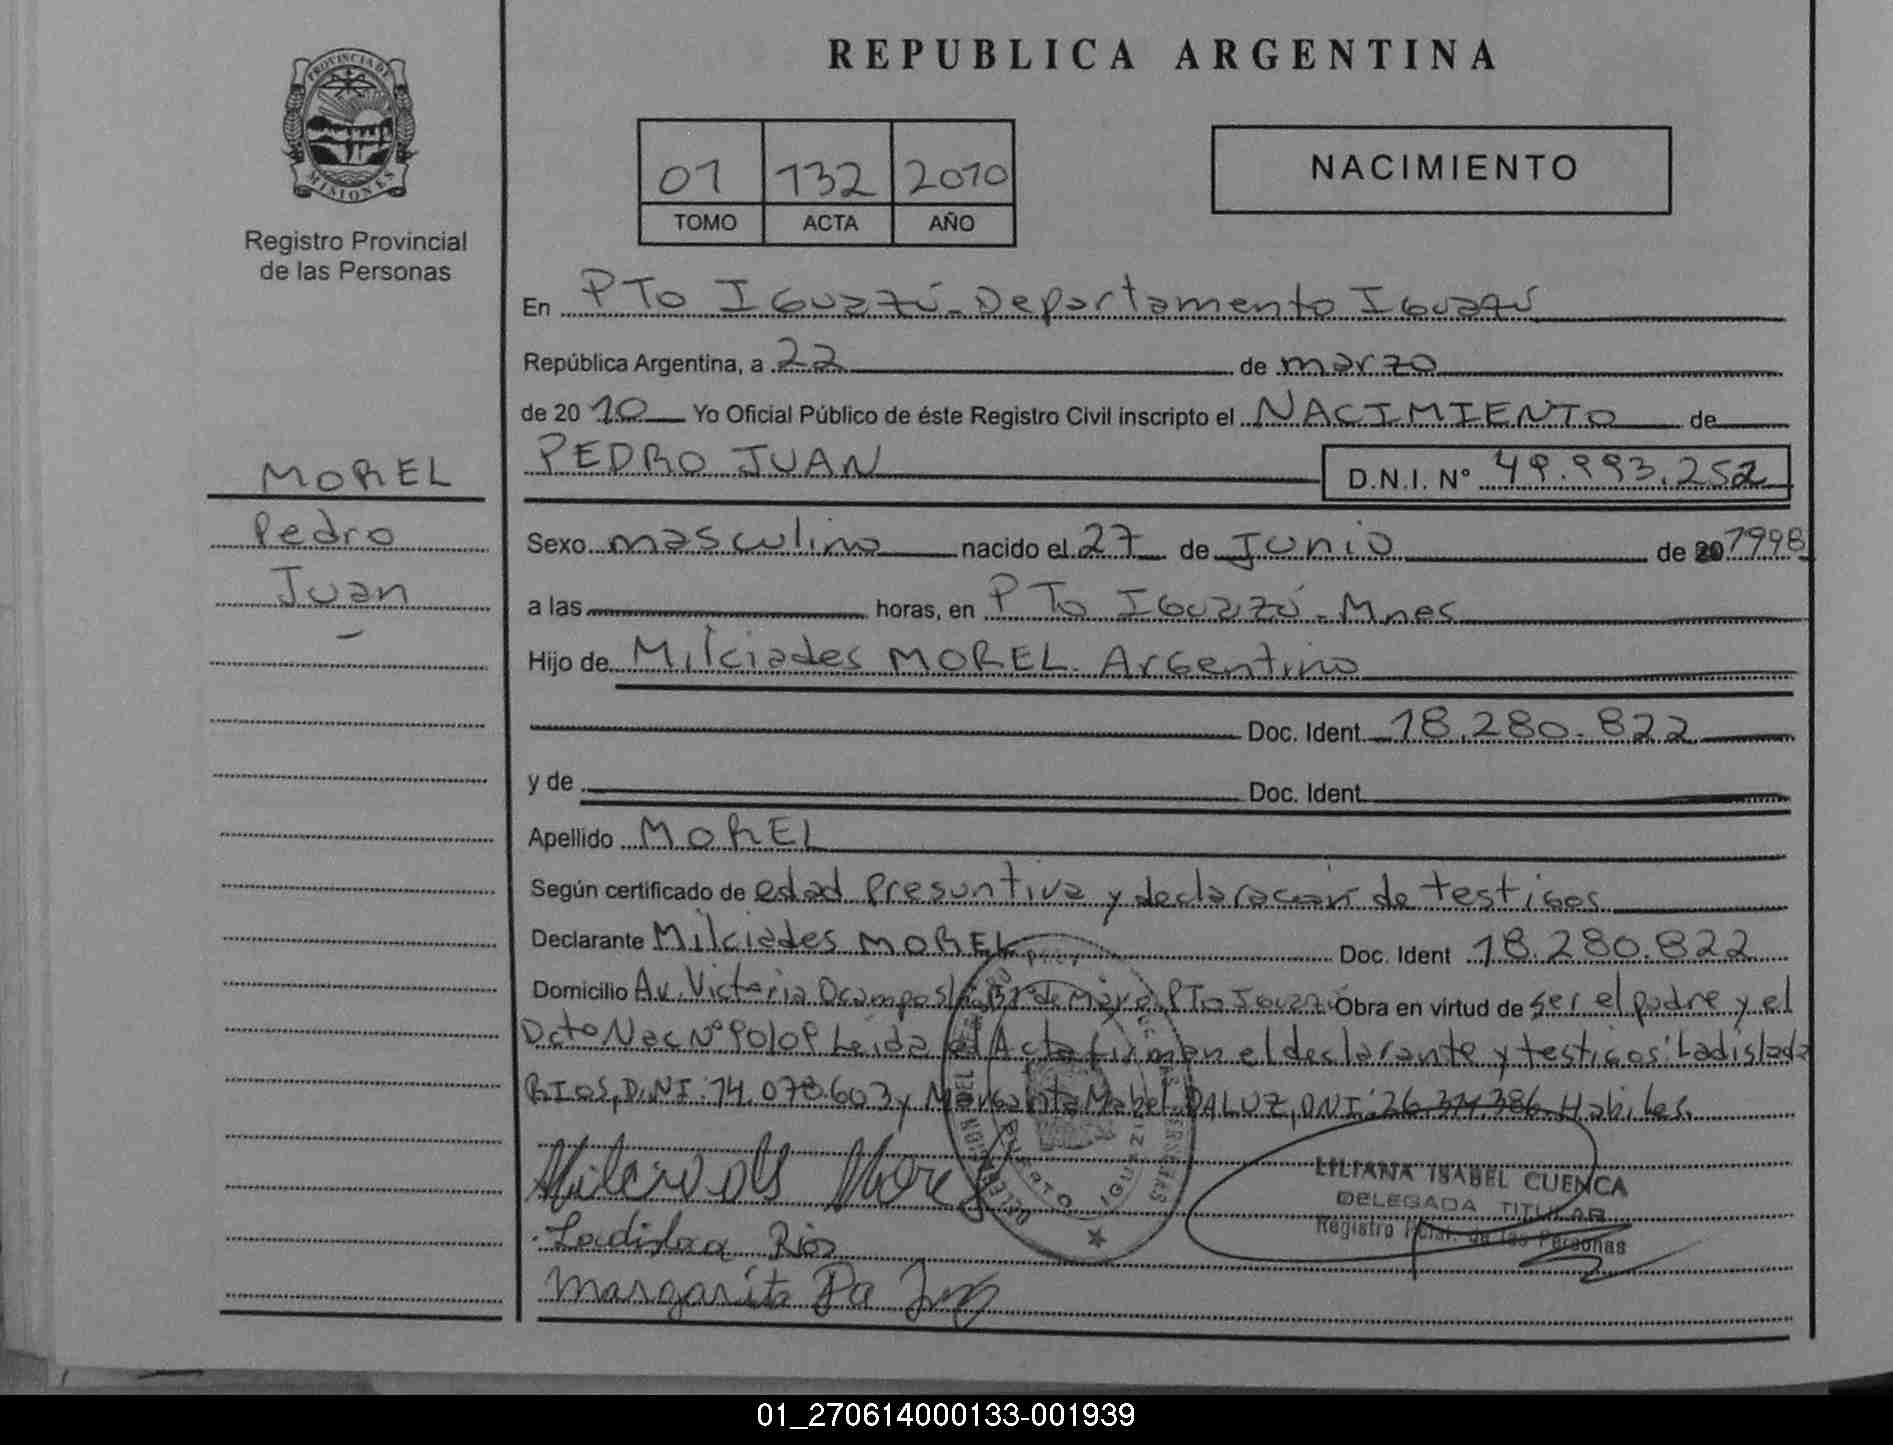 REPUBLICA ARGENTINA
PROVINCIA DE
MISIONES
Registro Provincial
de las Personas
01 132 2010
TOMO ACTA AÑO
NACIMIENTO
En PTo Iguazú - Departamento Iguazú
República Argentina, a 22 de marzo
de 20 10 Yo Oficial Público de éste Registro Civil inscripto el NACIMIENTO de
PEDRO JUAN D.N.I. Nº 49.993.252
MOREL
Pedro
Juan
Sexo masculino nacido el 27 de Junio de 1998
a las horas, en PTo Iguazú - Mnes
Hijo de Milciades MOREL. Argentino
Doc. Ident 18.280.822
y de Doc. Ident
Apellido MOREL
Según certificado de edad Presuntiva y declaración de testigos
Declarante Milciades MOREL Doc. Ident 18.280.822
Domicilio Av. Victoria Ocampo s/n Bº 1º de Mayo PTo Iguazú Obra en virtud de ser el padre y el
Dcto Nac Nº 90/09 Leída el Acta firman el declarante y testigos: Ladislada
RIOS, D.N.I: 14.078.603 y Margarita Mabel DALUZ, DNI: Habiles.
Milciades Morel
LILIANA ISABEL CUENCA
DELEGADA TITULAR
Registro Pcial. de las Personas
Ladislaa Rios
Margarita Da Luz
01_270614000133-001939